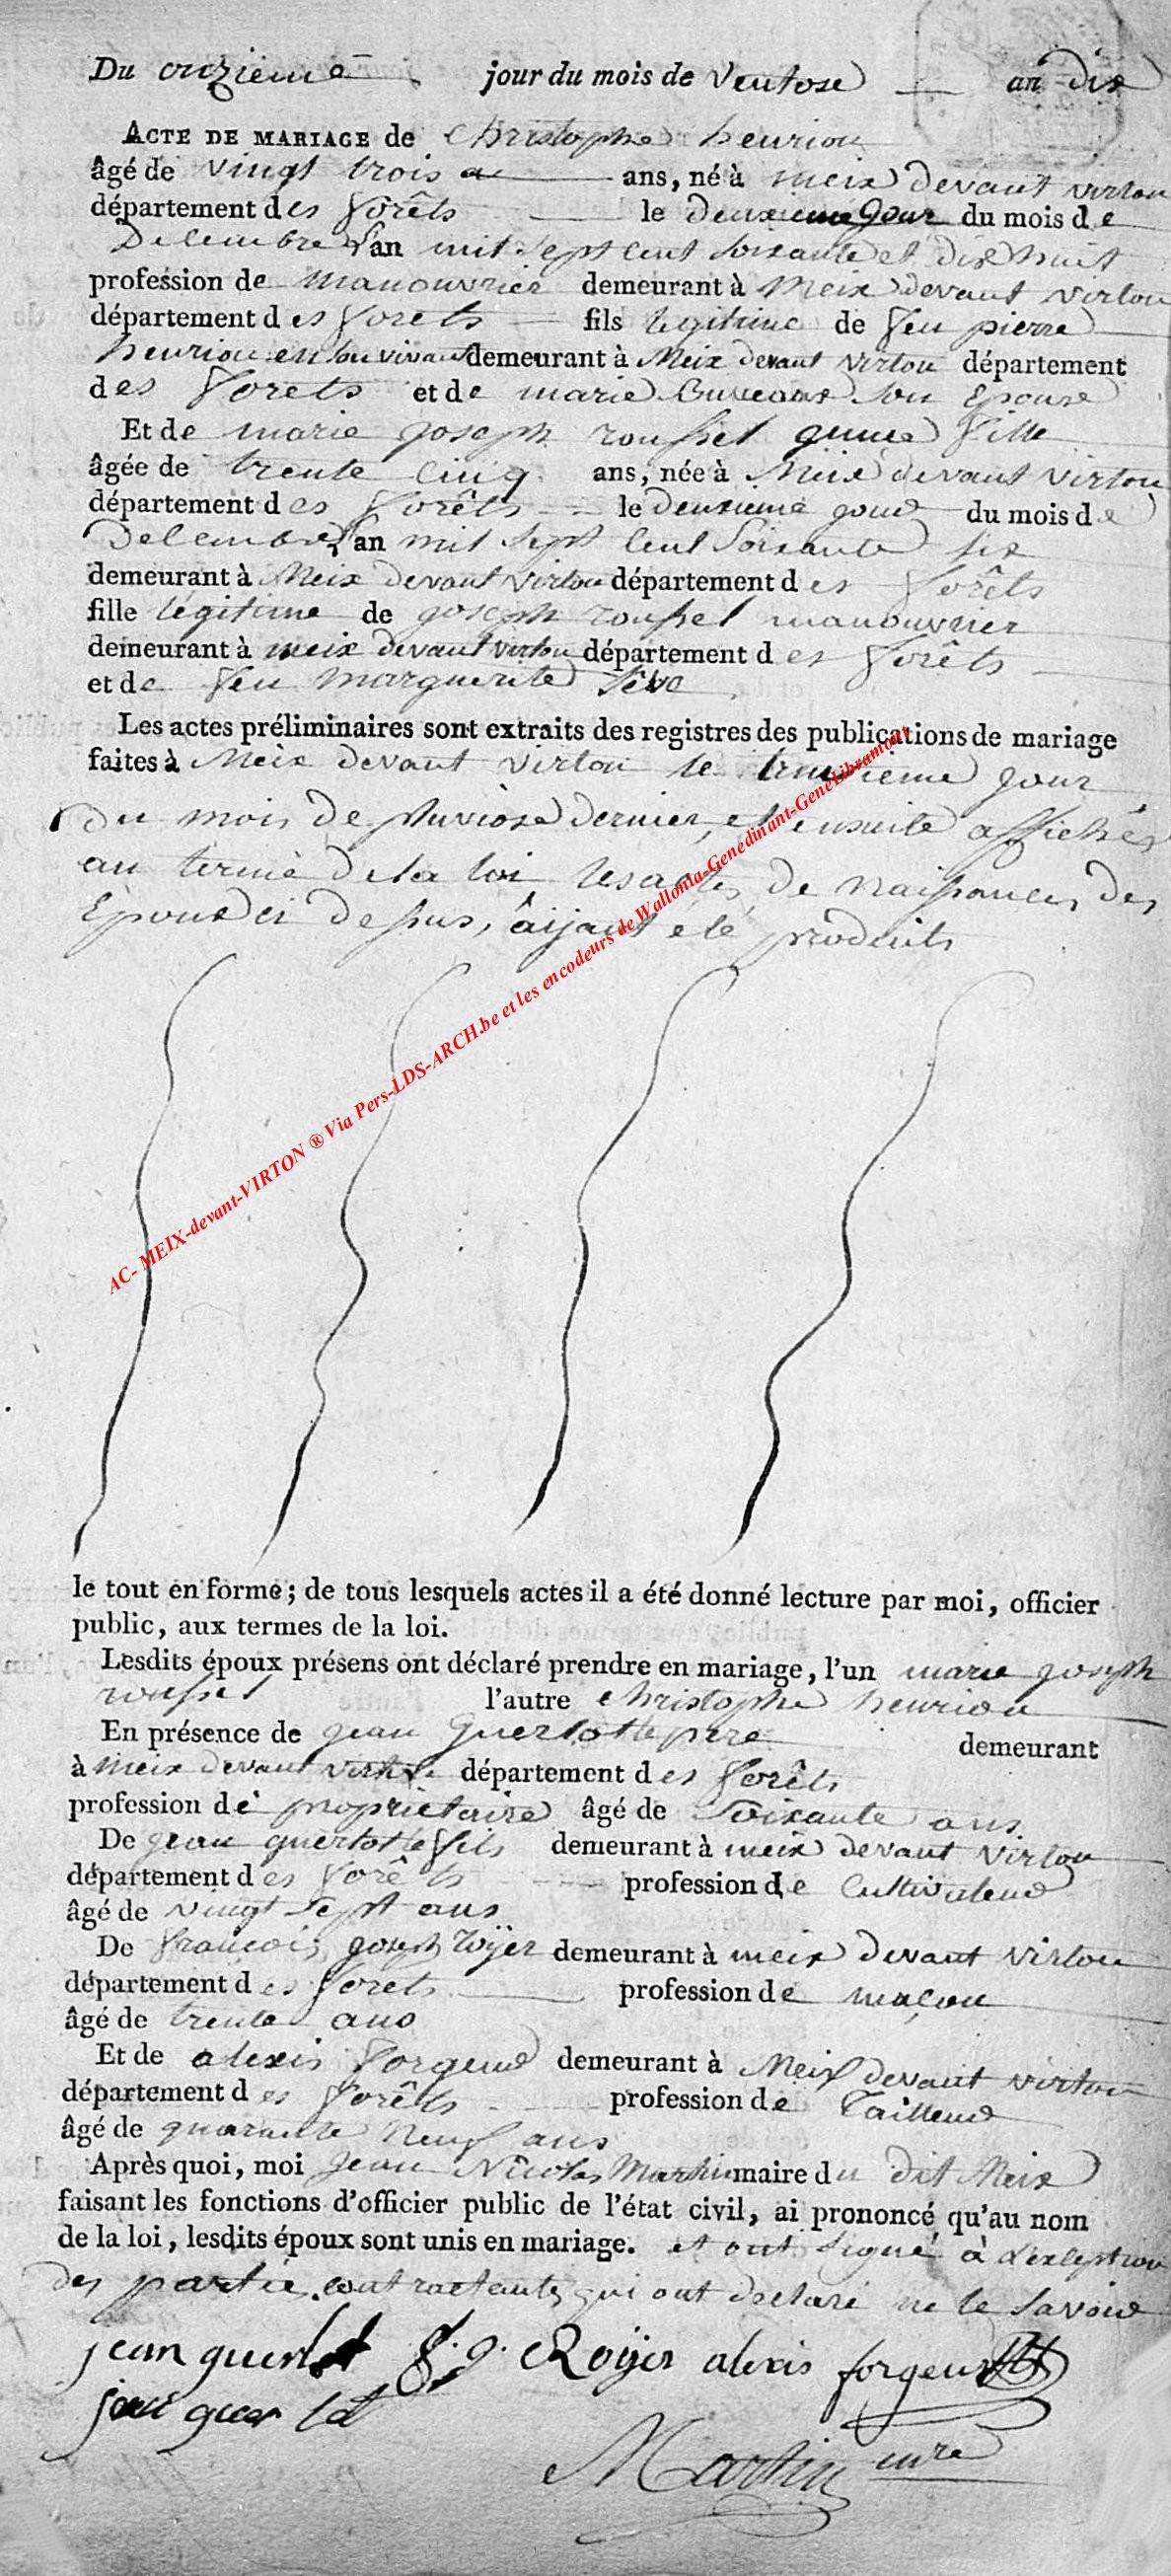 Du onzieme jour du mois de Ventose an dix
ACTE DE MARIAGE de Christophe henrion
âgé de vingt trois ans, né à meix devant virton
département des forêts le deuxieme jour du mois de
Decembre l'an mil sept cent soixante et dix huit
profession de manouvrier demeurant à Meix devant virton
département des forets fils legitime de feu pierre
henrion en son vivant demeurant à Meix devant virton département
des forets et de marie son Epouse
Et de marie joseph roussel jeune fille
âgée de trente cinq ans, née à Meix devant virton
département des forêts le deuxieme jour du mois de
Decembre l'an mil sept cent soixante six
demeurant à Meix devant virton département des forêts
fille légitime de joseph roussel manouvrier
demeurant à meix devant virton département des forêts
et de feu marguerite
Les actes préliminaires sont extraits des registres des publications de mariage
faites à Meix devant virton le jour
du mois de pluviose dernier, et ensuite affichés
au terme de la loi les actes de naissances des
Epoux ci dessus, aijant eté produits
AC- MEIX-devant-VIRTON ® Via Pers-LDS-ARCH.be et les encodeurs de Wallonia-Genedinant-GeneLibramont
le tout en forme ; de tous lesquels actes il a été donné lecture par moi, officier
public, aux termes de la loi.
Lesdits époux présens ont déclaré prendre en mariage, l'un marie joseph
roussel l'autre Christophe henrion
En présence de jean Guerlot le pere demeurant
à meix devant virton département des forêts
profession de propriétaire âgé de soixante ans
De jean guerlot le fils demeurant à meix devant virton
département des forêts profession de Cultivateur
âgé de vingt sept ans
De françois joseph roÿer demeurant à meix devant virton
département des forets profession de maçon
âgé de trente ans
Et de alexis forgeur demeurant à Meix devant virton
département des forêts profession de Tailleur
âgé de quarante neuf ans
Après quoi, moi Jean Nicolas Martin maire du dit Meix
faisant les fonctions d'officier public de l'état civil, ai prononcé qu'au nom
de la loi, lesdits époux sont unis en mariage. et ont signé à l'exception
des partie contractante qui ont declaré ne le savoir
jean guerlot f. j. Roÿer alexis forgeur
jean guerlot
Martin mre